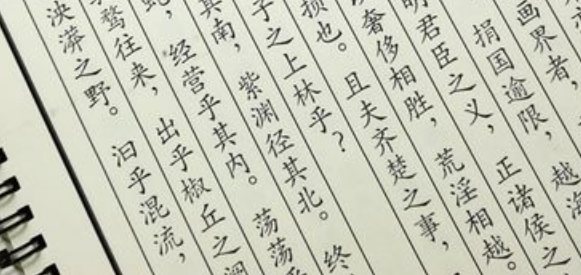 画界者，
捐国逾限，越海
明君臣之义，正诸侯之
奢侈相胜，荒淫相越。
损也。且夫齐楚之事，
子之上林乎？
其南，紫渊径其北。终
蛇，经营乎其内。荡荡
骛往来，出乎椒丘之
泱漭之野。汩乎混流，